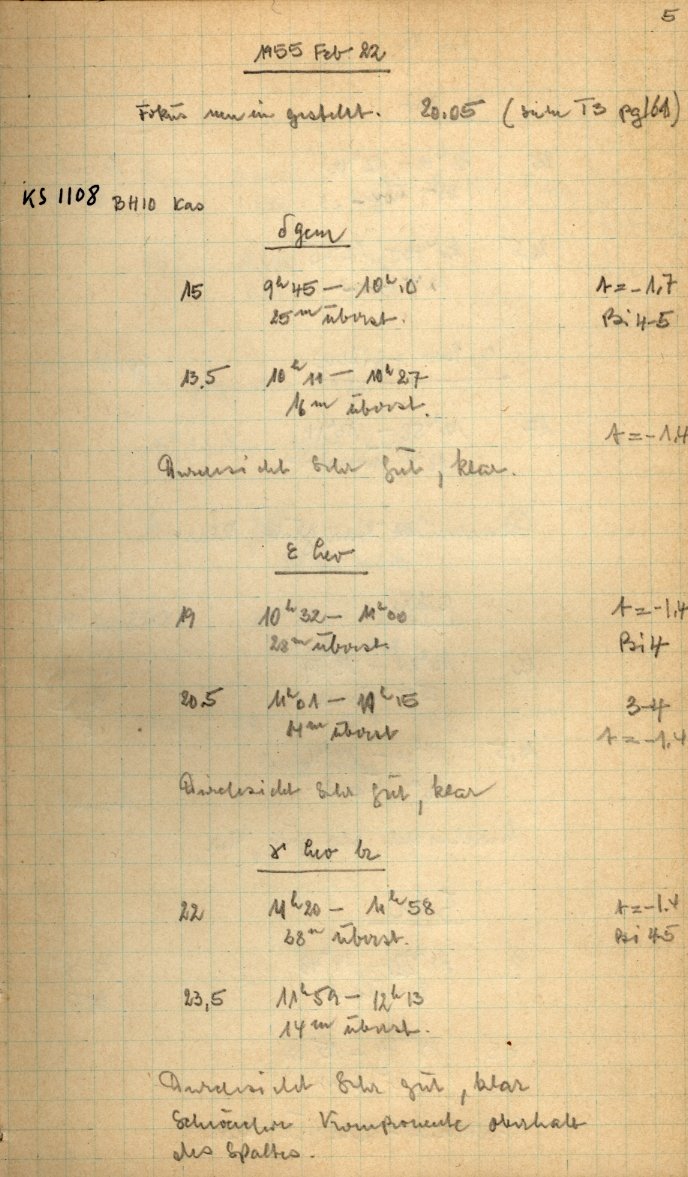 5
1955 Feb 22
Fokus neu ein gestellt. 20.05 (siehe T3 pg 161)
KS 1108 BH10 Kas
δ gem
15 9h45 — 10h10 t = -1,7
25m überst. Bi 4-5
13,5 10h11 — 10h27
16m überst.
t = -1,4
Durchsicht sehr gut, klar.
ε Leo
19 10h32 — 11h00 t = -1,4
28m überst. Bi 4
20,5 11h01 — 11h15 3-4
14m überst t = -1,4
Durchsicht sehr gut, klar
γ Leo br
22 11h20 — 11h58 t = -1.4
38m überst. Bi 4-5
23,5 11h59 — 12h13
14m überst.
Durchsicht sehr gut, klar
Schwächere Komponente oberhalb
des Spaltes.